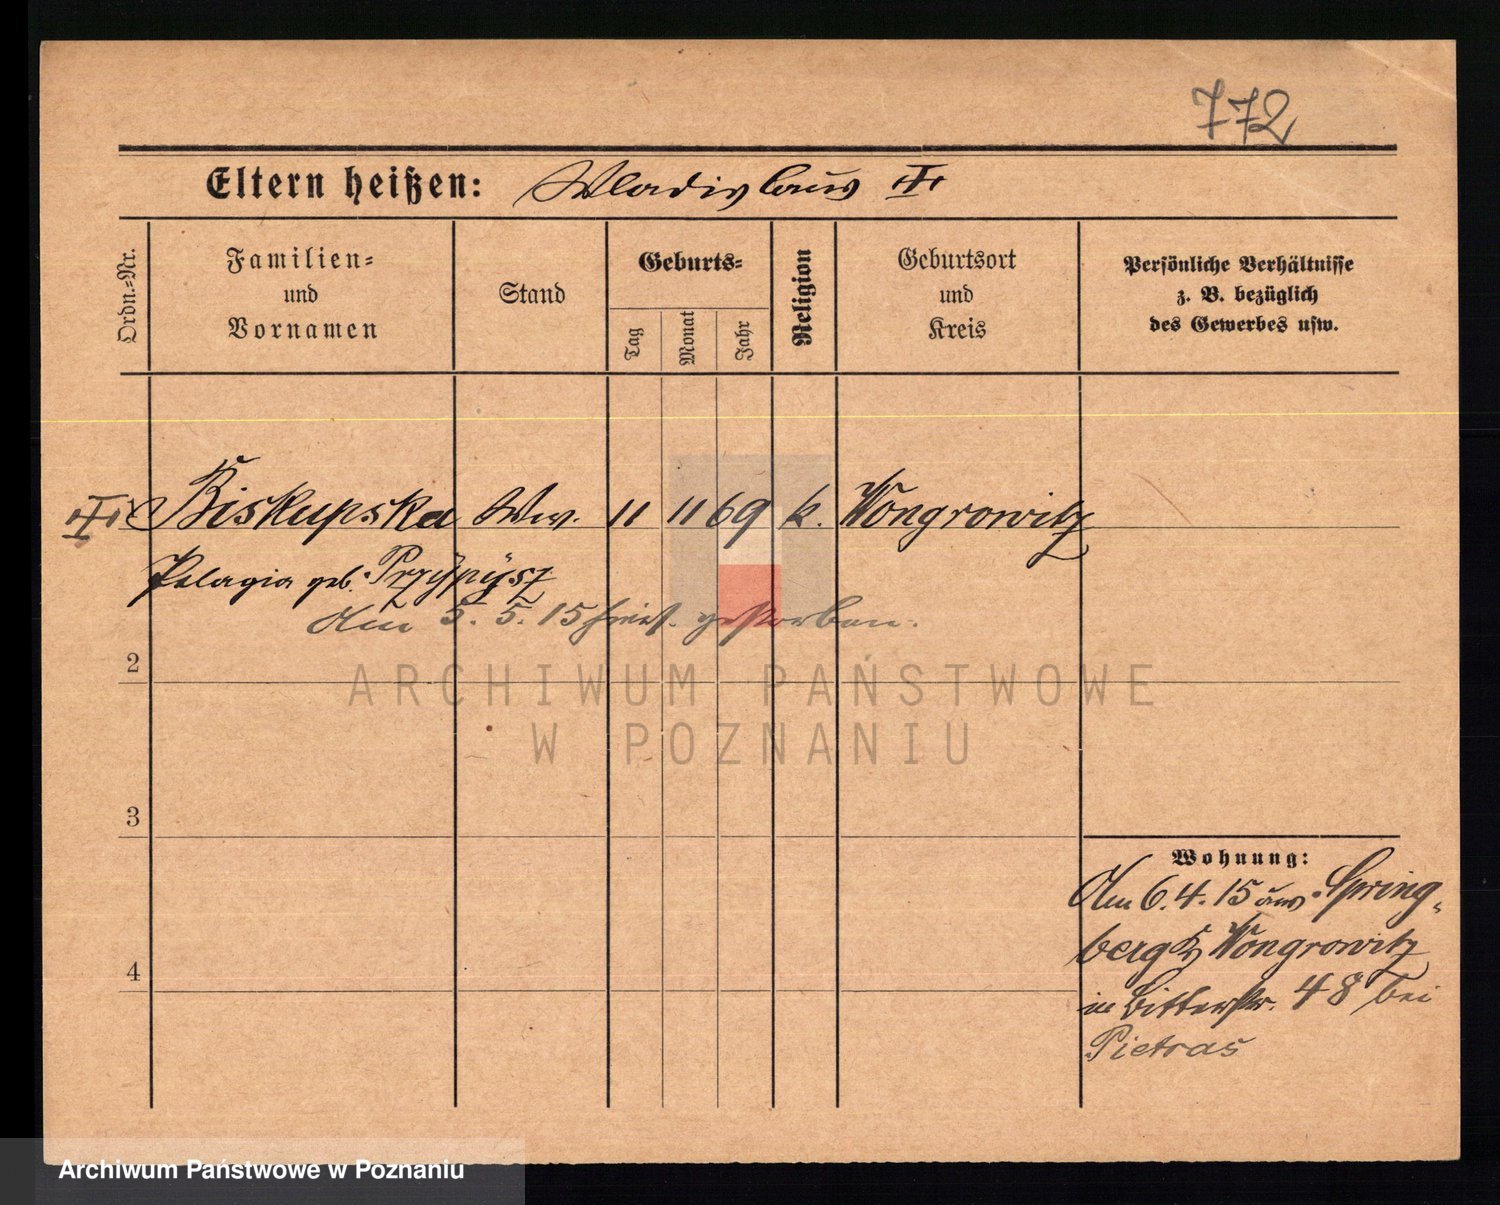 772
Eltern heißen: Wladislaus ✝
Ordn.-Nr.
Familien-
und
Vornamen
Stand
Geburts-
Tag
Monat
Jahr
Religion
Geburtsort
und
Kreis
Persönliche Verhältnisse
z. B. bezüglich
des Gewerbes usw.
Biskupska Ww. 11 11 69 k. Wongrowitz
Pelagia geb. Przÿpÿsz
Am 5. 5. 15 hier gestorben.
2
ARCHIWUM PAŃSTWOWE
W POZNANIU
3
Wohnung:
Am 6. 4. 15 aus Spring-
berg Kr Wongrowitz
4
in Bitterstr. 48 bei
Pietras
Archiwum Państwowe w Poznaniu